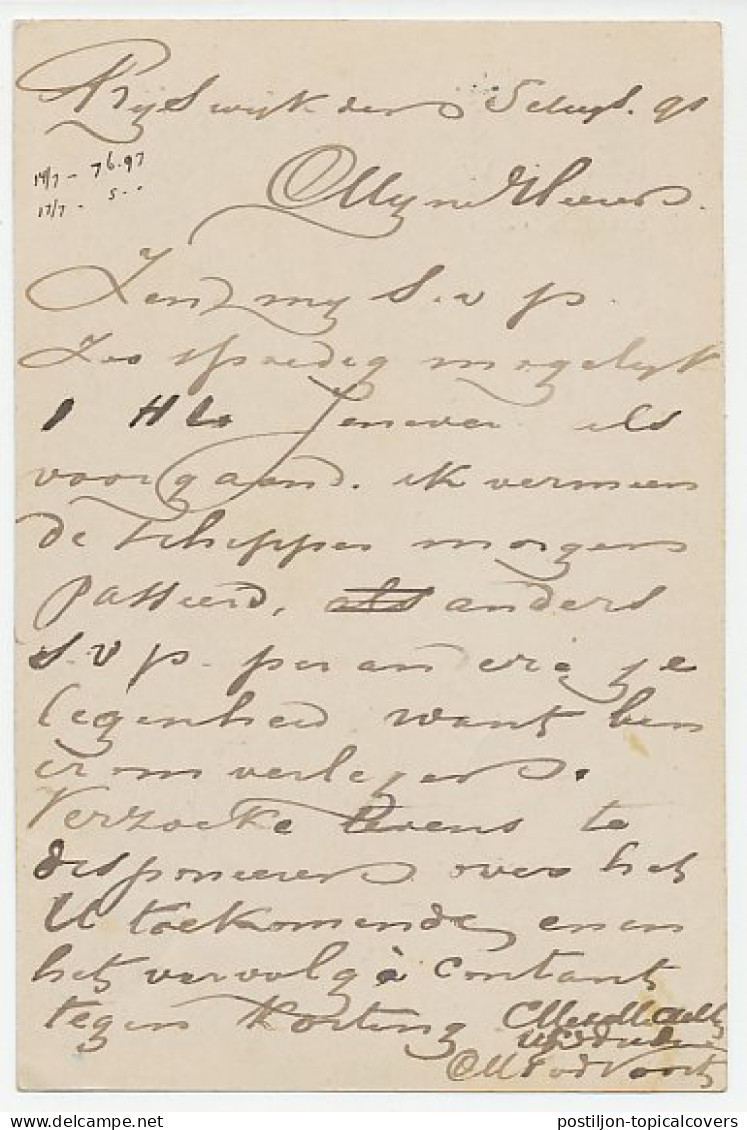 Rijswijk den 5 Augs. 91
14/7 - 76.97
17/7 - 5 --
Mijne Heeren.
Zend my S.v.p.
Zoo spoedig mogelyk
1 HLr Jenever als
voorgaand. ik vermeen
de schipper morgen
passeerd, als anders
S.v.p. per andere ge
legenheid want ben
er om verlegen.
Verzoeke tevens te
disponeeren over het
U toekomende, en in
het vervolg à contant
tegen Korting
postiljon-topicalcovers